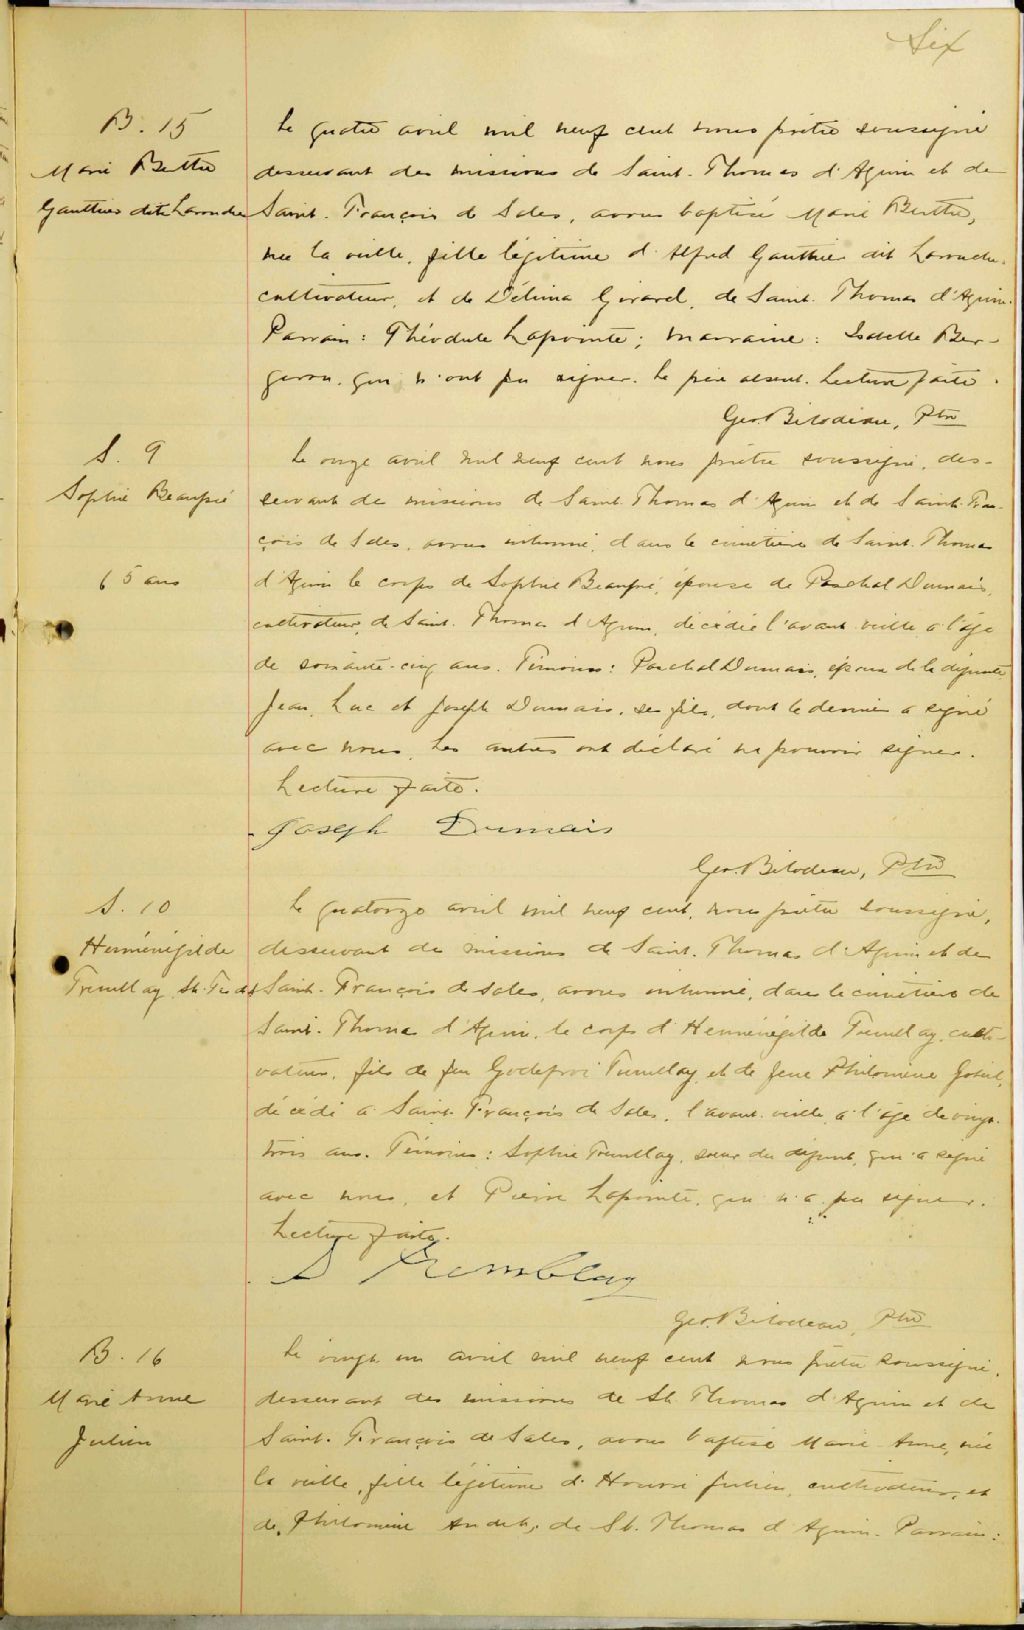 Six
B. 15
Marie Berthe
Gauthier dite Larouche
Le quatre avril mil neuf cent nous prêtre soussigné
desservant des missions de Saint-Thomas d'Aquin et de
Saint-François de Sales, avons baptisé Marie Berthe,
née la veille, fille légitime d'Alfred Gauthier dit Larouche,
cultivateur, et de Délima Girard, de Saint-Thomas d'Aquin.
Parrain: Théodule Lapointe; marraine: Isabelle Ber-
geron, qui n'ont pu signer. Le père absent. Lecture faite.
Geo. Bilodeau, Ptre
S. 9
Sophie Beaupré
65 ans
Le onze avril mil neuf cent nous prêtre soussigné, des-
servant de missions de Saint-Thomas d'Aquin et de Saint-Fran-
çois de Sales, avons inhumé, dans le cimetière de Saint-Thomas
d'Aquin le corps de Sophie Beaupré, épouse de Paschal Dumais,
cultivateur, de Saint-Thomas d'Aquin, décédée l'avant-veille, à l'âge
de soixante-cinq ans. Témoins: Paschal Dumais, époux de la défunte
Jean, Luc et Joseph Dumais, ses fils, dont le dernier a signé
avec nous, les autres ont déclaré ne pouvoir signer.
Lecture faite.
Joseph Dumais
Geo. Bilodeau, Ptre
S. 10
Herménégilde
Tremblay St. Fr. de S
Le quatorze avril mil neuf cent, nous prêtre soussigné,
desservant de missions de Saint-Thomas d'Aquin et de
Saint-François de Sales, avons inhumé, dans le cimetière de
Saint-Thomas d'Aquin, le corps d'Herménégilde Tremblay, culti-
vateur, fils de feu Godefroi Tremblay et de feue Philomène
décédé à Saint-François de Sales, l'avant-veille, à l'âge de vingt-
trois ans. Témoins: Sophie Tremblay, sœur du défunt, qui a signé
avec nous, et Pierre Lapointe, qui n'a pu signer.
Lecture faite.
S Tremblay
Geo. Bilodeau, Ptre
B. 16
Marie Anne
Julien
Le vingt-un avril mil neuf cent nous prêtre soussigné,
desservant des missions de St. Thomas d'Aquin et de
Saint-François de Sales, avons baptisé Marie-Anne, née
la veille, fille légitime d'Honoré Julien, cultivateur, et
de Philomène Audet, de St. Thomas d'Aquin. Parrain: